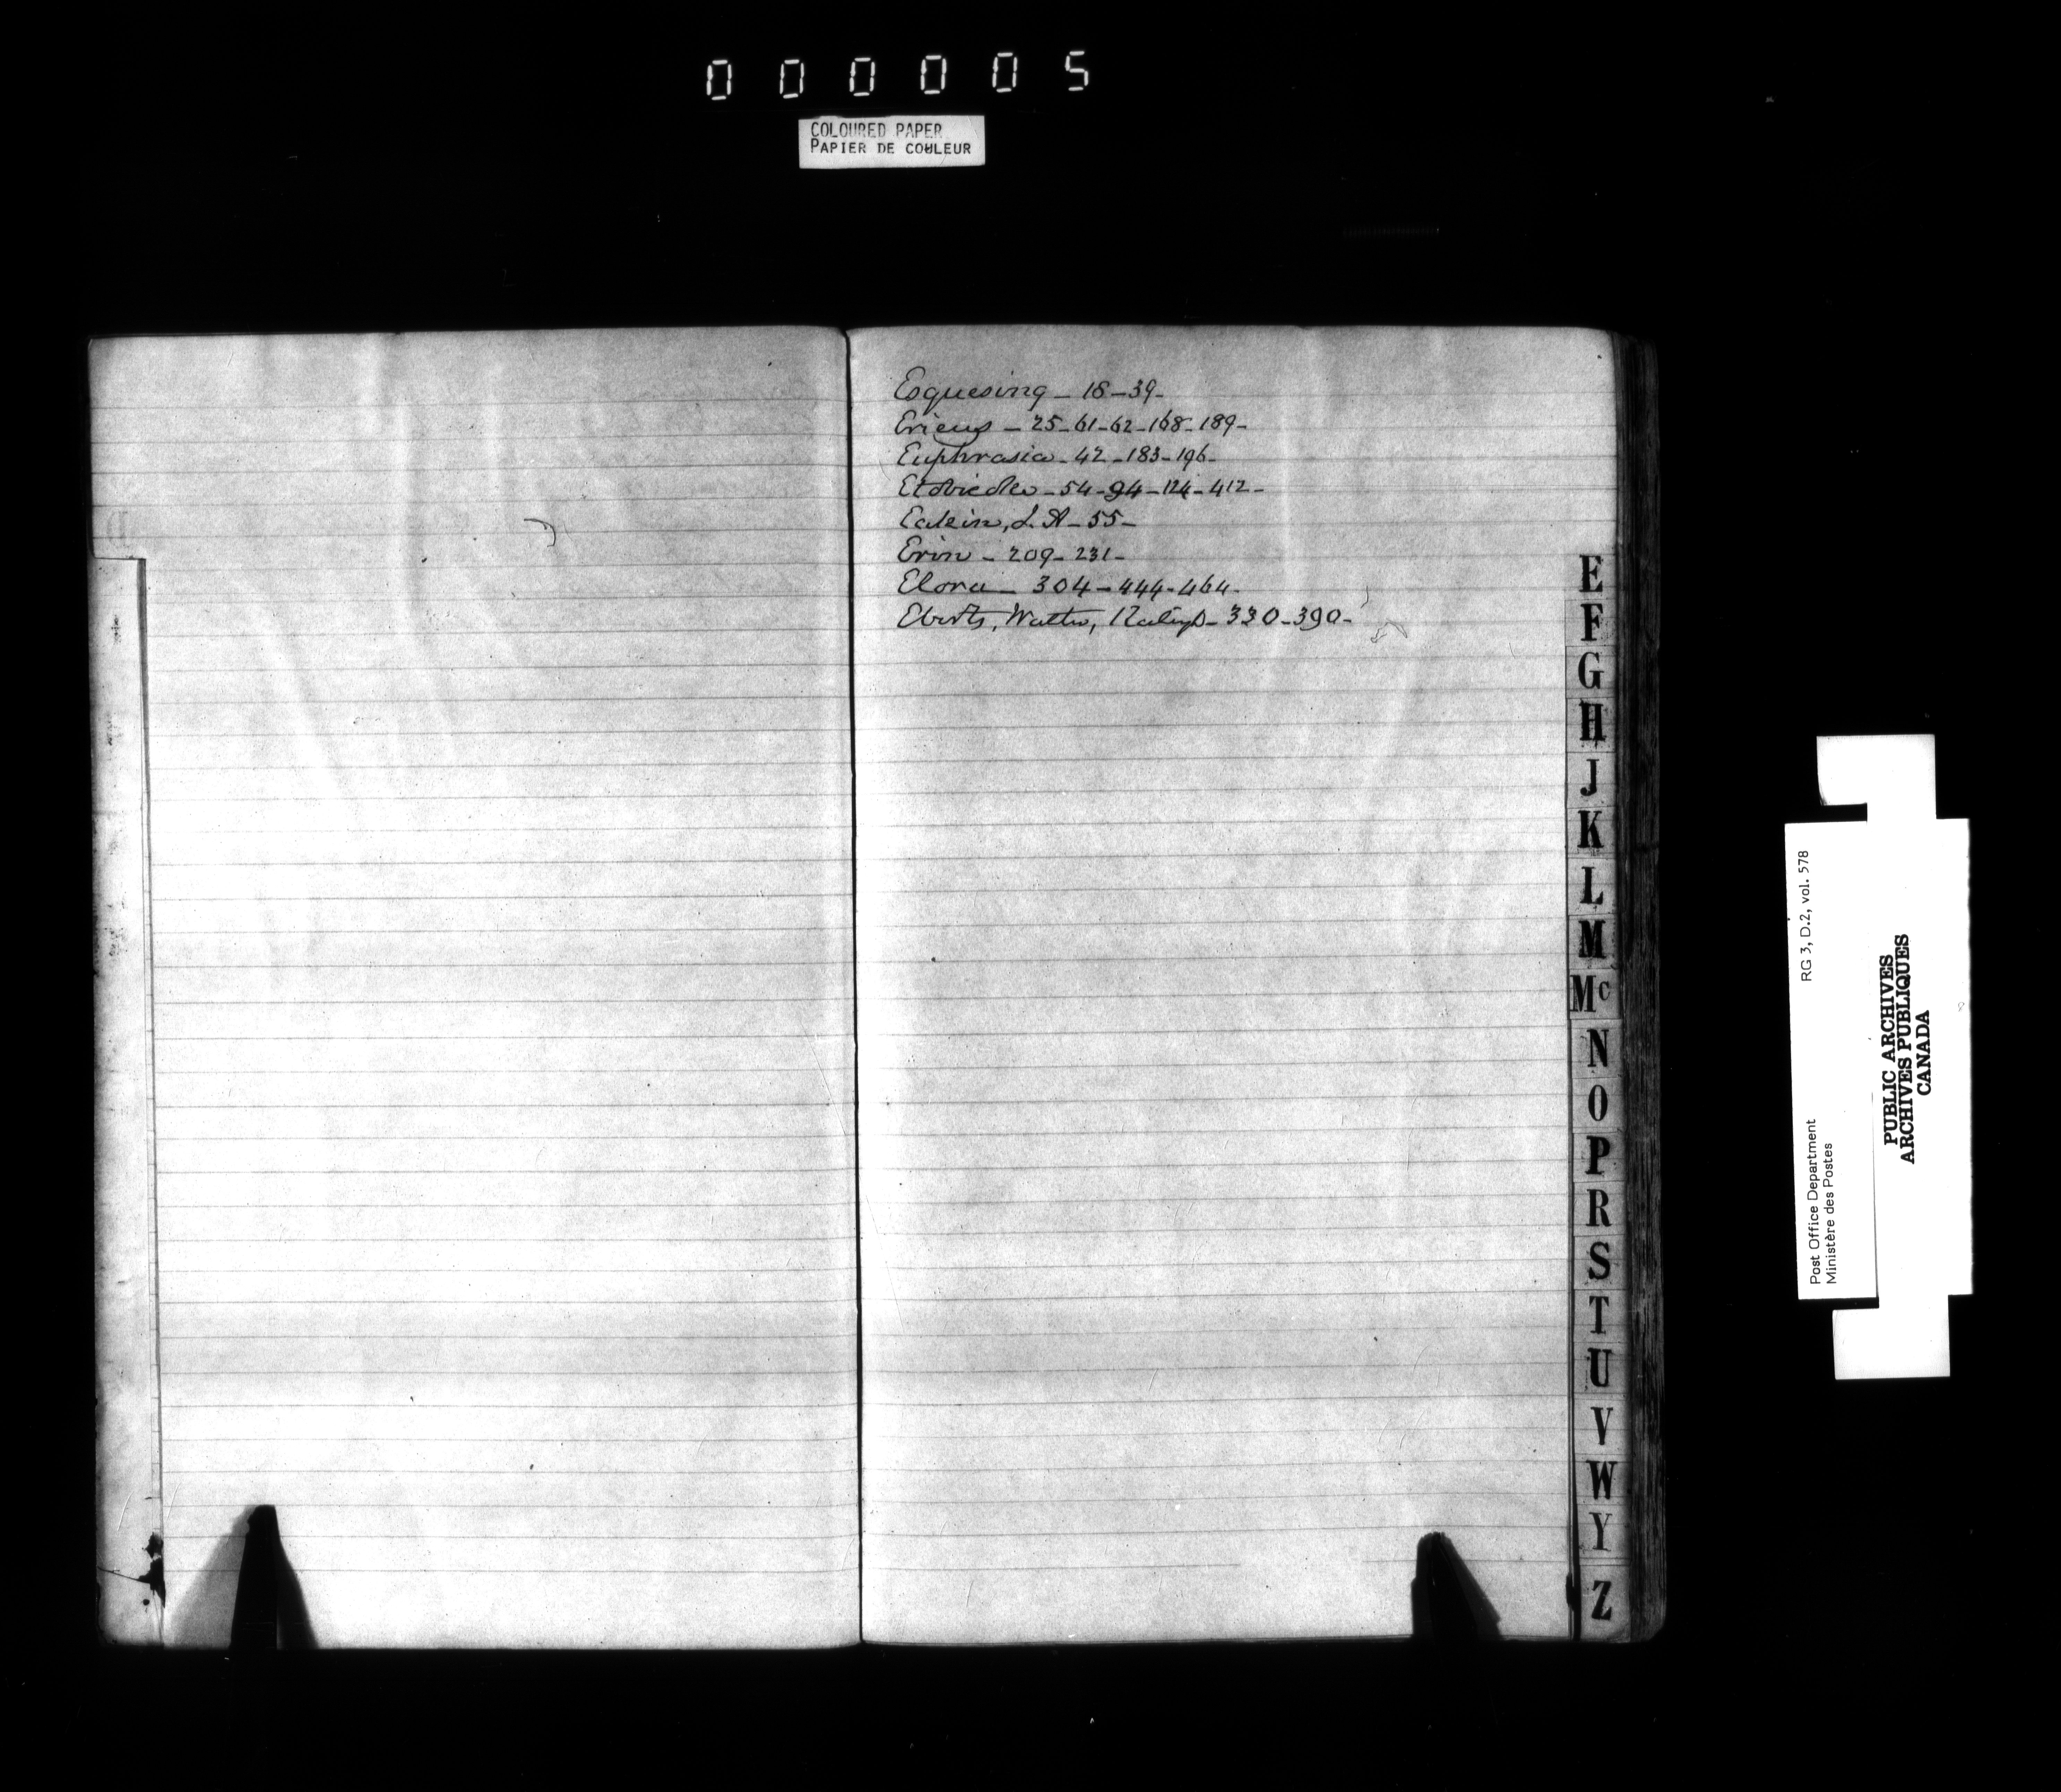 000005
COLOURED PAPER
PAPIER DE COULEUR
Esquesing - 18 - 39 -
Erieus - 25 - 61 - 62 - 168 - 189 -
Euphrasia - 42 - 183 - 196 -
Etobicoke - 54 - 94 - 124 - 412 -
Eakin, L. A - 55 -
Erin - 209 - 231 -
Elora - 304 - 444 - 464 -
Eberts, Walter, - 330 - 390 -
E
F
G
H
J
K
L
M
Mc
N
O
P
R
S
T
U
V
W
Y
Z
Post Office Department RG 3, D.2, vol. 578
Ministère des Postes
PUBLIC ARCHIVES
ARCHIVES PUBLIQUES
CANADA